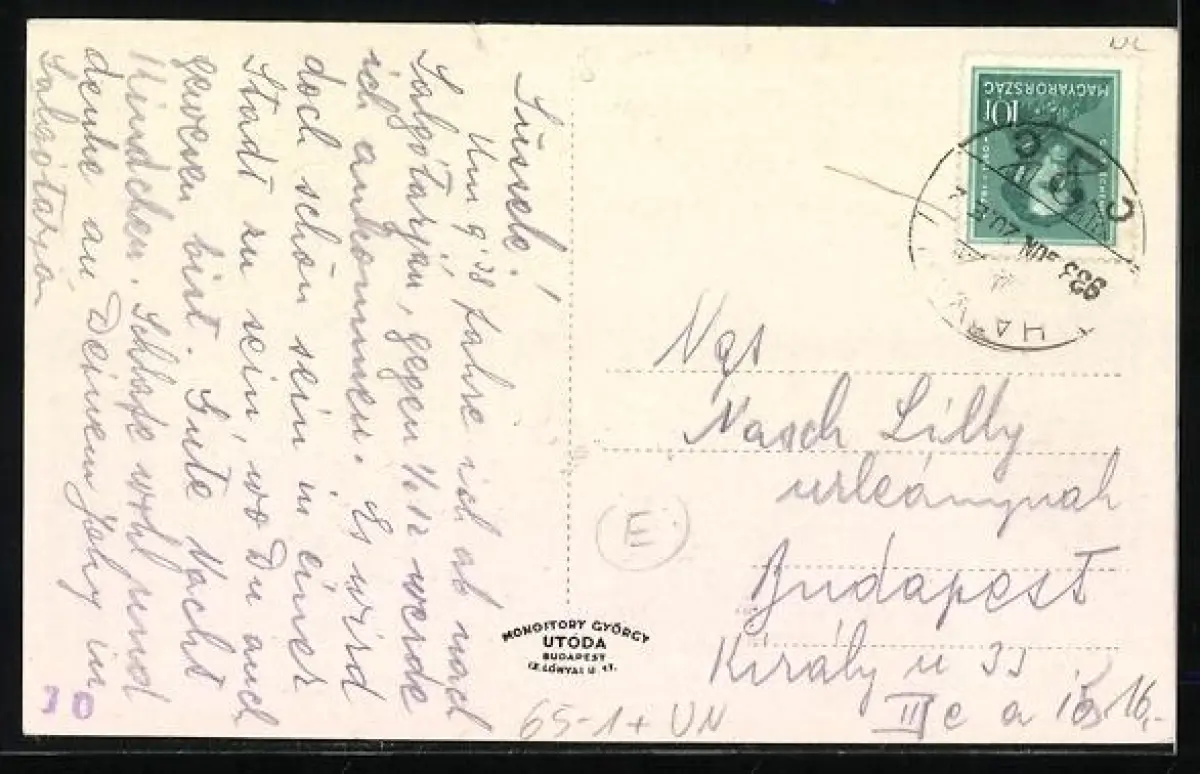 Süssek!
Um 9'35 fahre ich ab nach
Salgótarján, gegen ½12 werde
ich ankommen. Es wird
doch schön sein in einer
Stadt zu sein, wo Du auch
gewesen bist. Gute Nacht
Kindchen. Schlafe wohl und
denke an Deinen Jehy in
Salgótarján
MAGYARORSZÁG
10f
933 JUN
HATV
Ngs
Nasch Lilly
urleánynak
Budapest
Király u 33
III e a
16,-
E
MONOSTORY GYÖRGY
UTÓDA
BUDAPEST
IX. LÓNYAI U. 47.
65-1+ UN
10